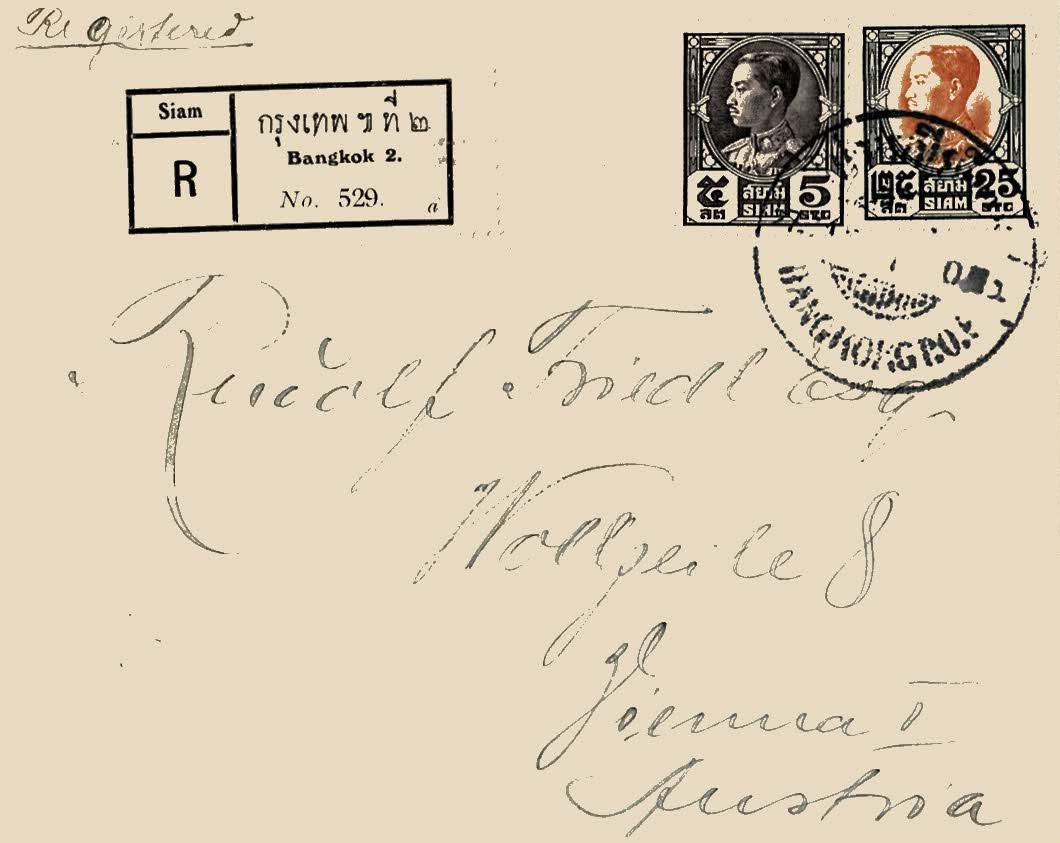 Registered
Siam
R
กรุงเทพ ฯ ที่ ๒
Bangkok 2.
No. 529. a
๕ สยาม 5
สต SIAM STG
๒๕ สยาม 25
สต SIAM STG
BANGKOK G.P.O.
Rudolf Friedl Esq.
Wollzeile 8
Vienna I
Austria